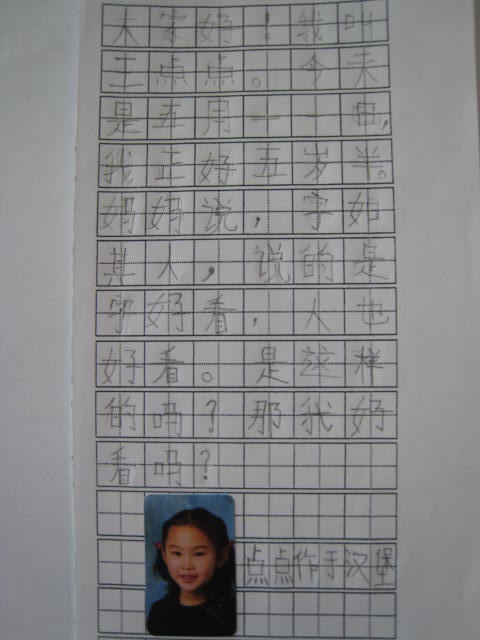 大家好！我叫
王点点。今天
是五月十一日，
我正好五岁半。
妈妈说，字如
其人，说的是
字好看，人也
好看。是这样
的吗？那我好
看吗？
点点作于汉堡